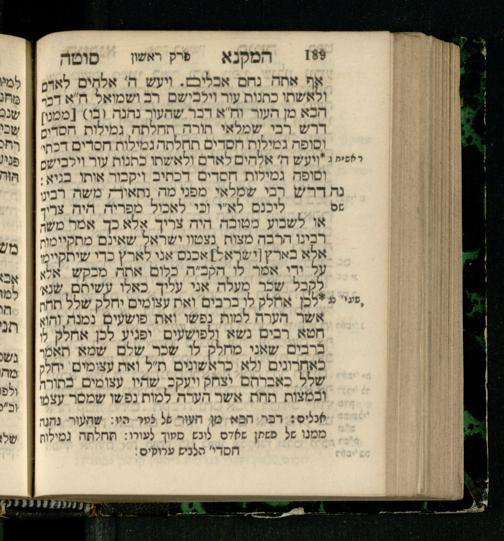 189 המקנא פרק ראשון סוטה
אף אתה נחם אבלים. ויעש ה' אלהים לאדם
ולאשתו כתנות עור וילבישם רב ושמואל ח"א דבר
הבא מן העור וח"א דבר שהעור נהנה (בו) [ממנו]
דרש רבי שמלאי תורה תחלתה גמילות חסדים
וסופה גמילות חסדים תחלתה גמילות חסדים דכתי'
ראשית ג *ויעש ה' אלהים לאדם ולאשתו כתנות עור וילבישם
וסופה גמילות חסדים דכתיב ויקבור אותו בגיא:
נה דרש רבי שמלאי מפני מה נתאוה משה רבינו
שם ליכנס לא"י וכי לאכול מפריה היה צריך
או לשבוע מטובה היה צריך אלא כך אמר משה
רבינו הרבה מצות נצטוו ישראל שאינם מתקיימות
אלא בארץ [ישראל] אכנס אני לארץ כדי שיתקיימו
על ידי אמר לו הקב"ה כלום אתה מבקש אלא
לקבל שכר מעלה אני עליך כאלו עשיתם שנא'
ישעי' נג *לכן אחלק לו ברבים ואת עצומים יחלק שלל תחת
אשר הערה למות נפשו ואת פושעים נמנה והוא
חטא רבים נשא ולפושעים יפגיע לכן אחלק לו
ברבים שאני מחלק לו שכר שלם שמא תאמר
כאחרונים ולא כראשונים ת"ל ואת עצומים יחלק
שלל כאברהם יצחק ויעקב שהיו עצומים בתורה
ובמצות תחת אשר הערה למות נפשו שמסר עצמו
אבלים: דבר הבא מן העור של
שהעור נהנה
ממנו של פשתן שאדם לובש סמוך לעורו: תחלתה גמילות
חסדי' הלביש ערומים: